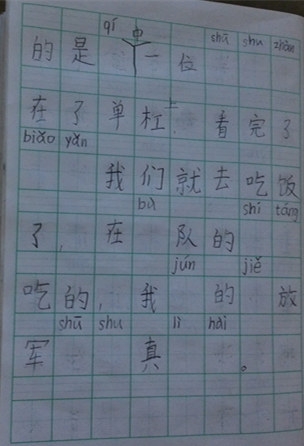 qí 中 shū shu zhàn
的是一位
在了单杠上 看完了
biǎo yǎn
我们就去吃饭
bù shí táng
了，在 队的
jún jiě
吃的，我 的 放
shū shu lì hài
军 真 。